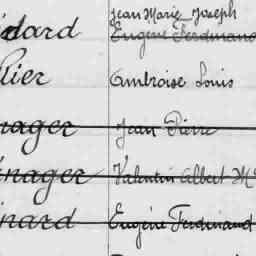 Jean Marie Joseph
Eugène Ferdinand
Ambroise Louis
nager Jean Pierre
nager Valentin Albert M
nard Eugène Ferdinand